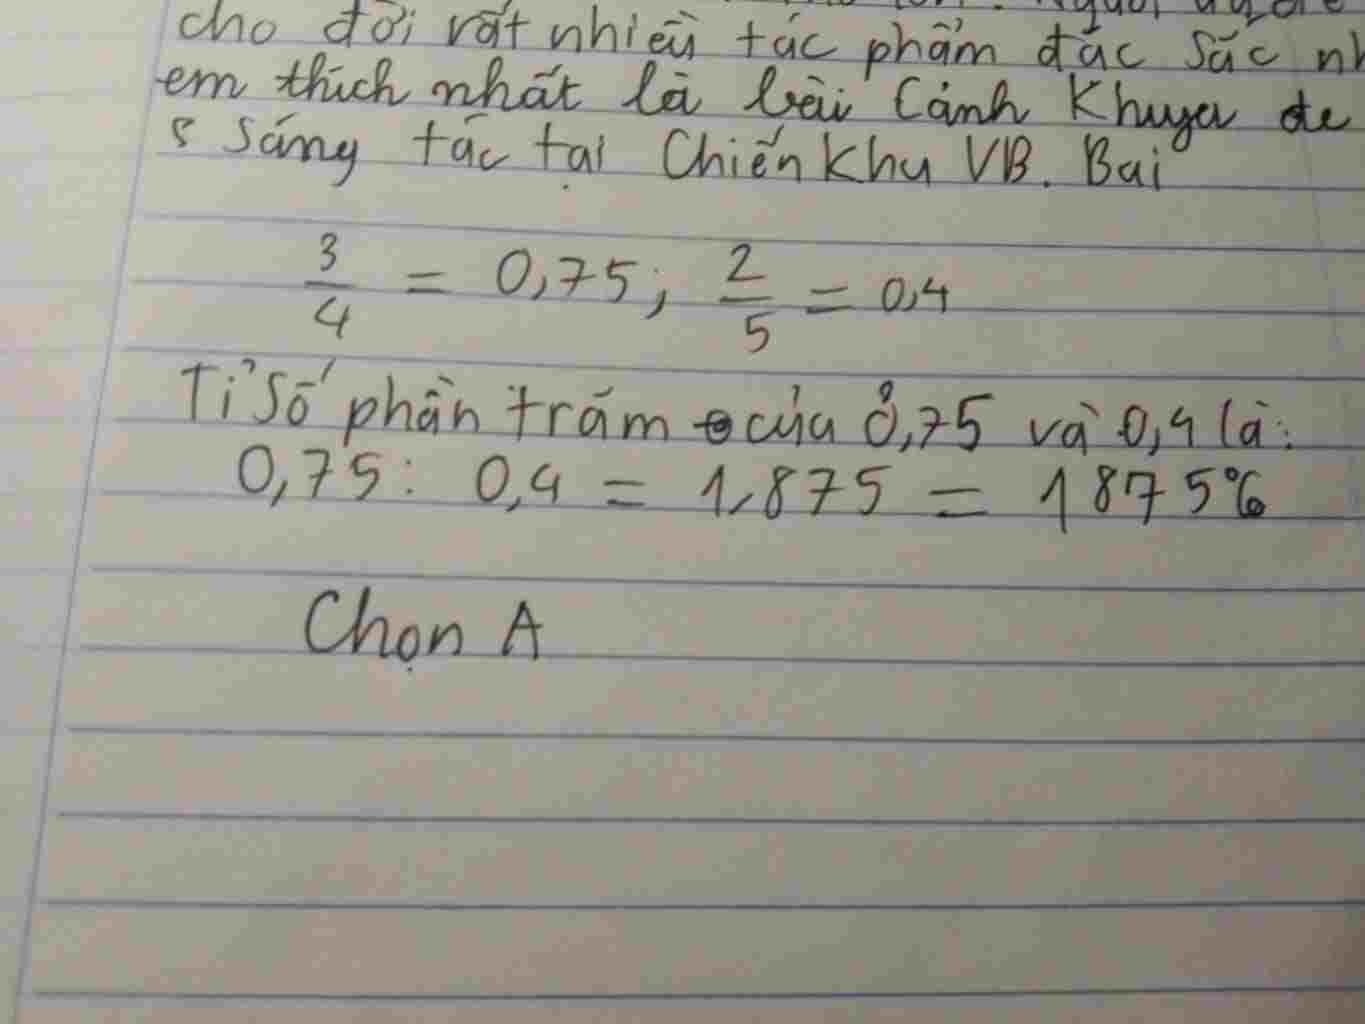 cho đời rất nhiều tác phẩm đặc sắc nh
em thích nhất là bài Cảnh Khuya đc
s sáng tác tại Chiến Khu VB. Bai
3/4 = 0,75; 2/5 = 0,4
Tỉ số phần trăm của 0,75 và 0,4 là:
0,75: 0,4 = 1,875 = 1875%
Chọn A